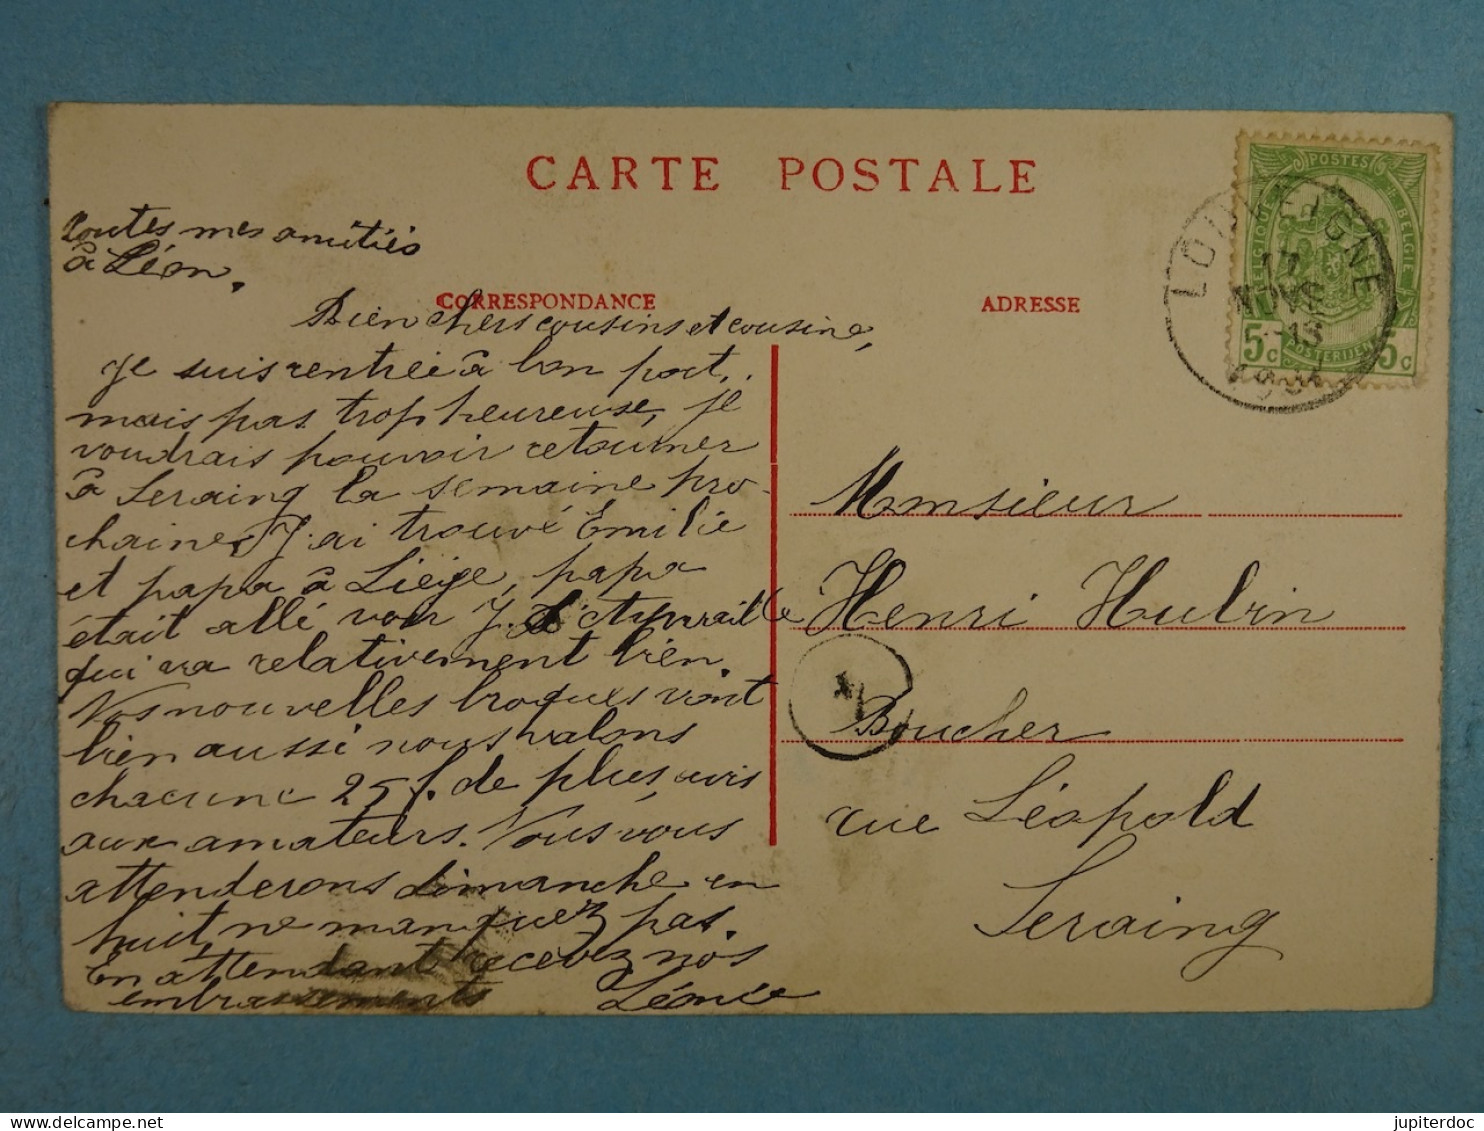 CARTE POSTALE
toutes mes amitiés
à Léon.
CORRESPONDANCE
ADRESSE
Bien chers cousins et cousine,
Je suis rentrée à bon port,
mais pas trop heureuse, je
voudrais pouvoir retourner
à Seraing la semaine pro-
chaine. J'ai trouvé Emilie
et papa à Liége, papa
était allé voir J.
qui va relativement bien.
Vos nouvelles broques vont
bien aussi nous valons
chacune 25 f. de plus, avis
aux amateurs. Nous vous
attenderons dimanche en
huit, ne manquez pas.
En attendant recevez nos
embrassements Léonie
Monsieur
Henri Hulin
Boucher
rue Léopold
Seraing
POSTES
BELGIQUE
BELGIE
POSTERIJEN
5c 5c
LOUVEIGNÉ
17
jupiterdoc
delcampe.net